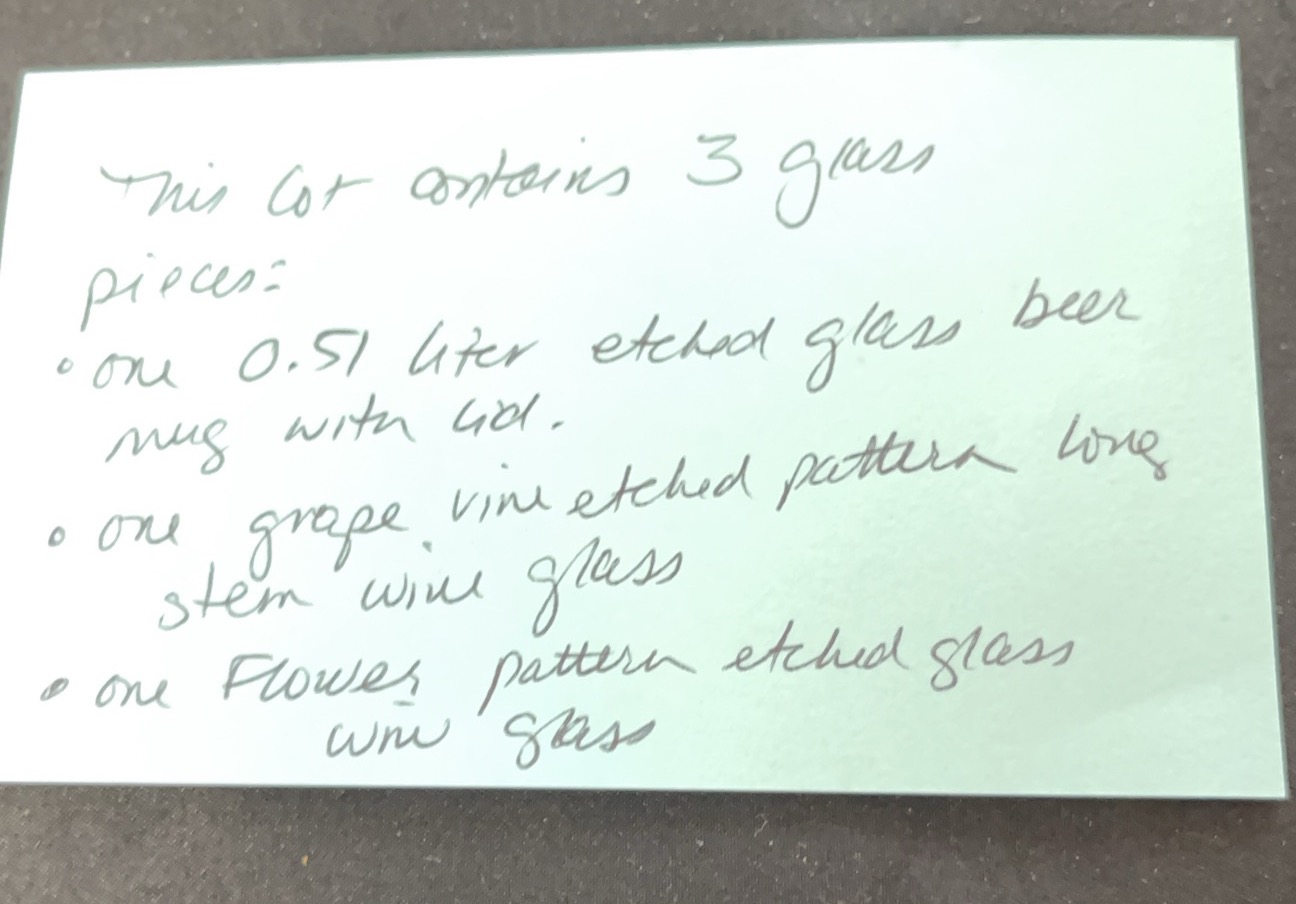 This lot contains 3 glass
pieces:
• one 0.5l liter etched glass beer
mug with lid.
• one grape vine etched pattern long
stem wine glass
• one Flower pattern etched glass
wine glass